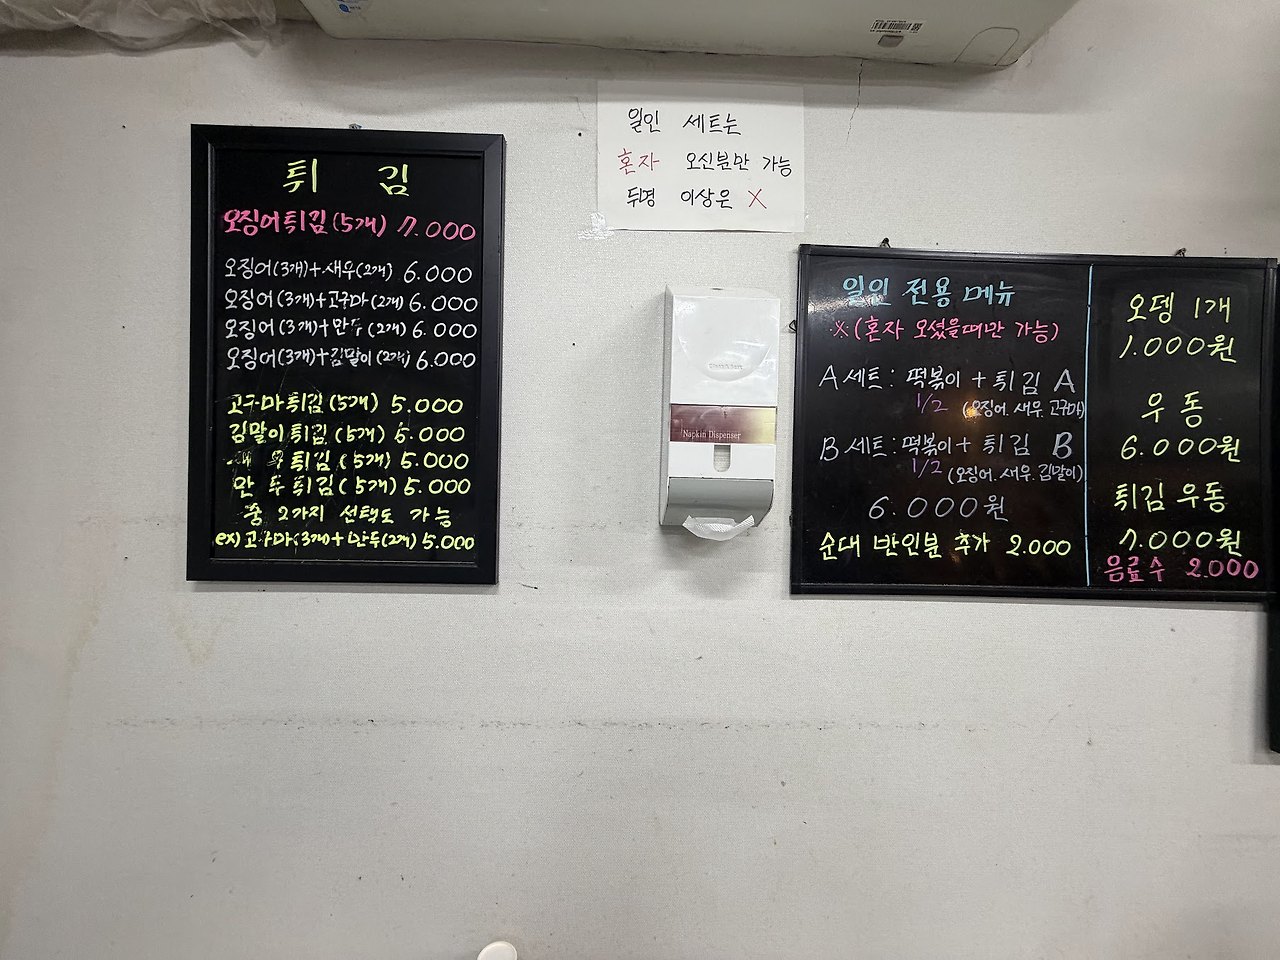 튀 김
오징어튀김(5개) 7.000
오징어(3개)+새우(2개) 6.000
오징어(3개)+고구마(2개) 6.000
오징어(3개)+만두(2개) 6.000
오징어(3개)+김말이(2개) 6.000
고구마튀김(5개) 5.000
김말이튀김(5개) 5.000
튀김(5개) 5.000
만두튀김(5개) 5.000
중 2가지 선택도 가능
ex) 고구마(3개)+만두(2개) 5.000
일인 세트는
혼자 오신분만 가능
두명 이상은 X
Napkin Dispenser
일인 전용 메뉴
※(혼자 오셨을때만 가능)
A세트: 떡볶이 + 튀김 A
1/2 (오징어. 새우. 고구마)
B세트: 떡볶이 + 튀김 B
1/2 (오징어. 새우. 김말이)
6.000원
순대 반인분 추가 2.000
오뎅 1개
1.000원
우동
6.000원
튀김우동
7.000원
음료수 2.000